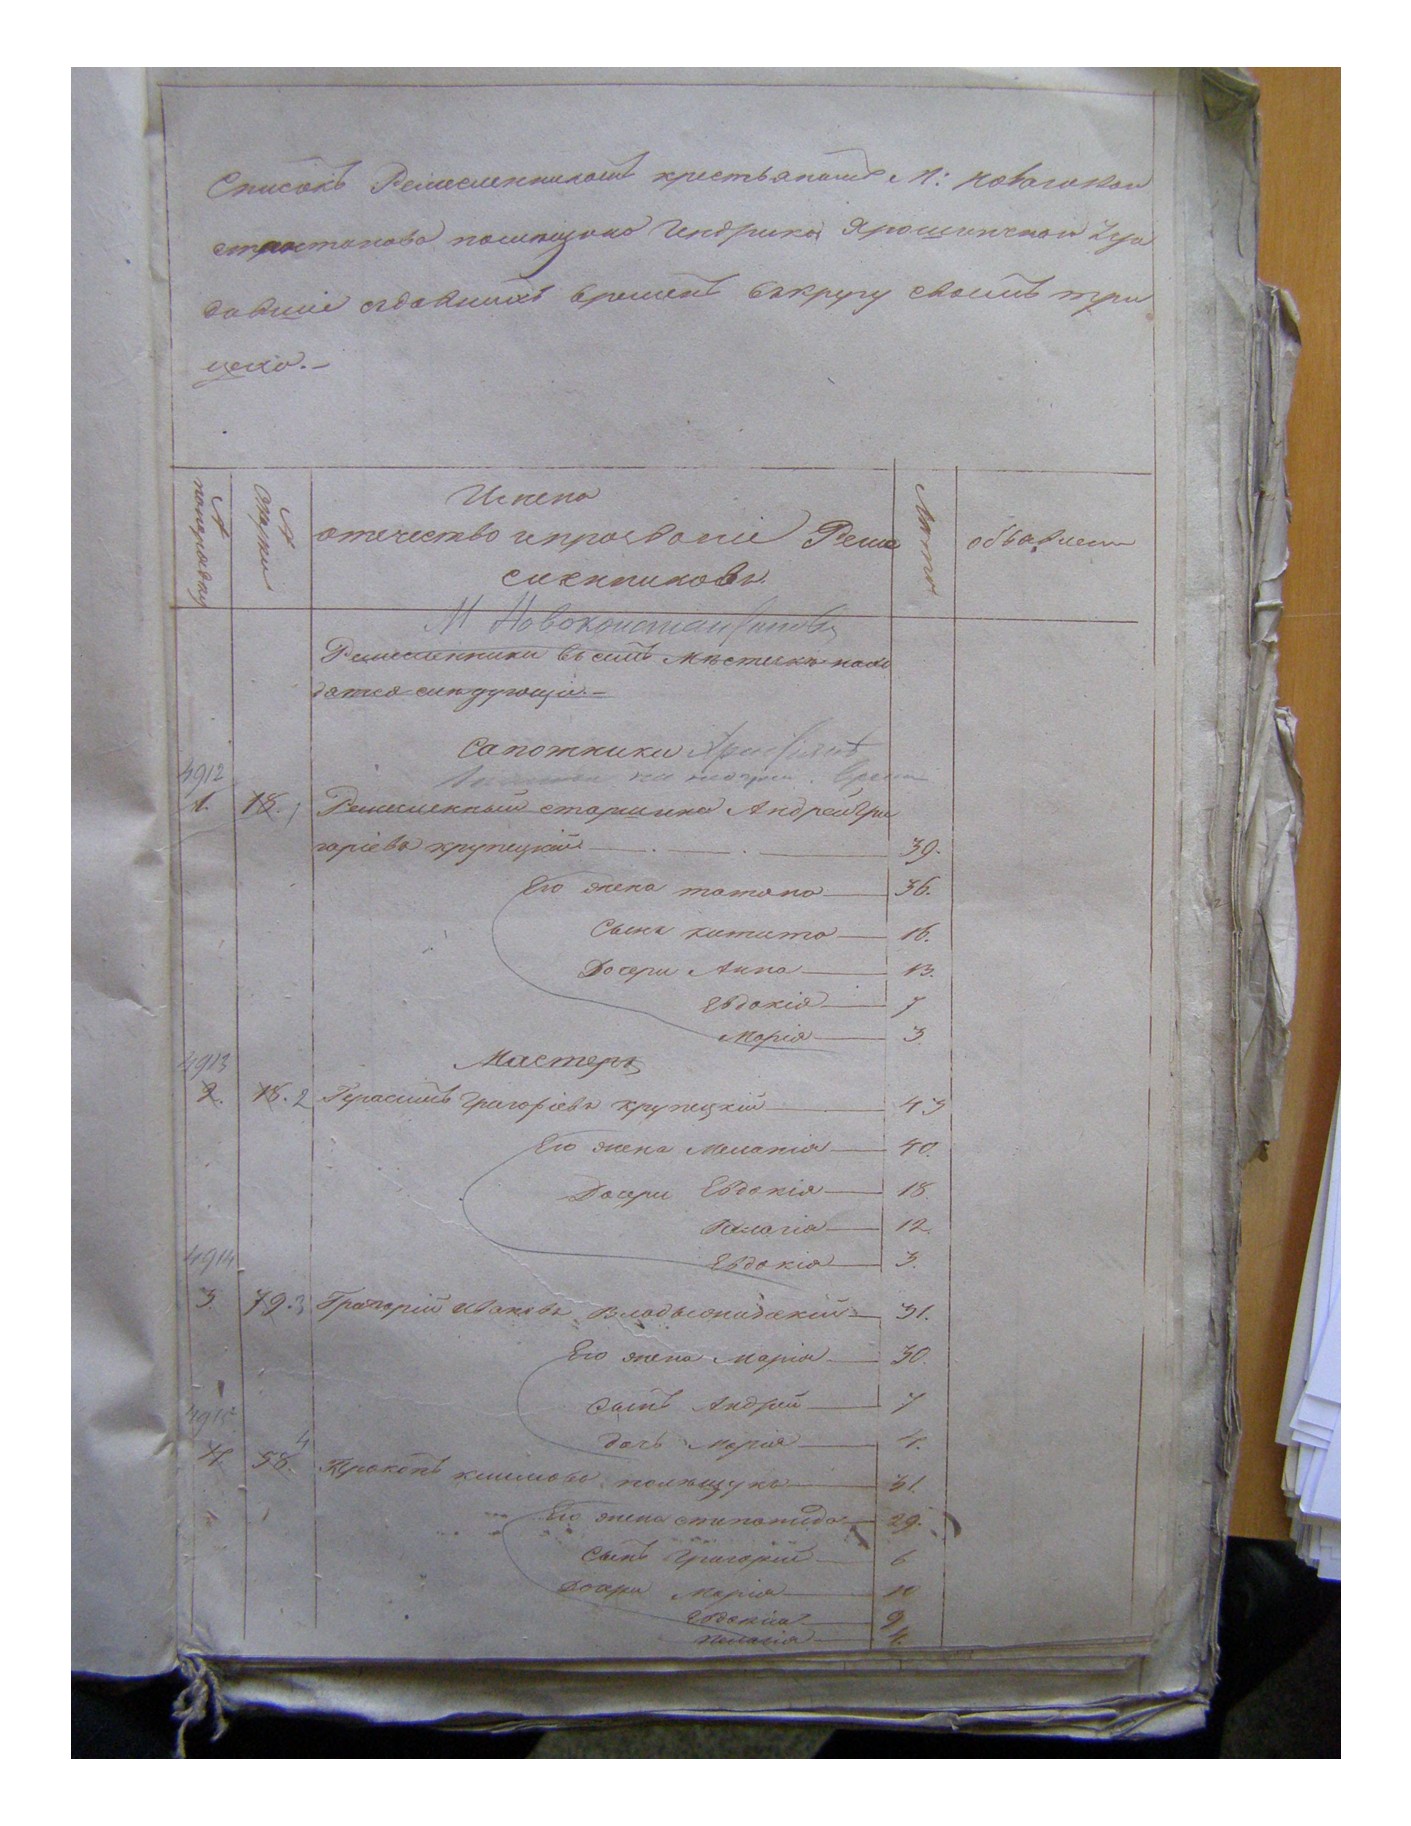 Списокъ Ремесленниковъ крестьянамъ М: новагокон
стантинова помещика Индрика Ярошинскаи
давние сдавныхъ временъ вокругу своимъ три
цеха.–
№ попорядку
№ сказки
Имена
Лѣта
отечество ипрозваніе Реме
объявлени
сленниковъ
М Новоконстантиновъ
Ремесленники въ семъ мѣстечкѣ нахо
дятся следующіе.–
Сапожники
4912
1. 18. 1 Ремесленный старшина Андрей Гри
горіевъ крупецкій 39.
Его жена татяна 36.
Сынъ никита 16.
Дочери Анна 13.
Евдокія 7
Марія 3
Мастеры
4913
2. 18. 2 Герасимъ Григоріевъ крупецкій 43
Его жена Меланія 40.
Дочери Евдокія 18
Пелагія 12.
Евдокія 3.
4914
3. 79. 3 Григорій Ивановъ 31.
Его жена Марія 30.
сынъ Андрей 7
дочь Марія 4.
4915
4. 58. 4 Прокопъ климовъ полищукъ 31.
Его жена степанида 29.
Сынъ Григорій 6
Дочери Марія 10
Евдокія 9
Пелагія 4.